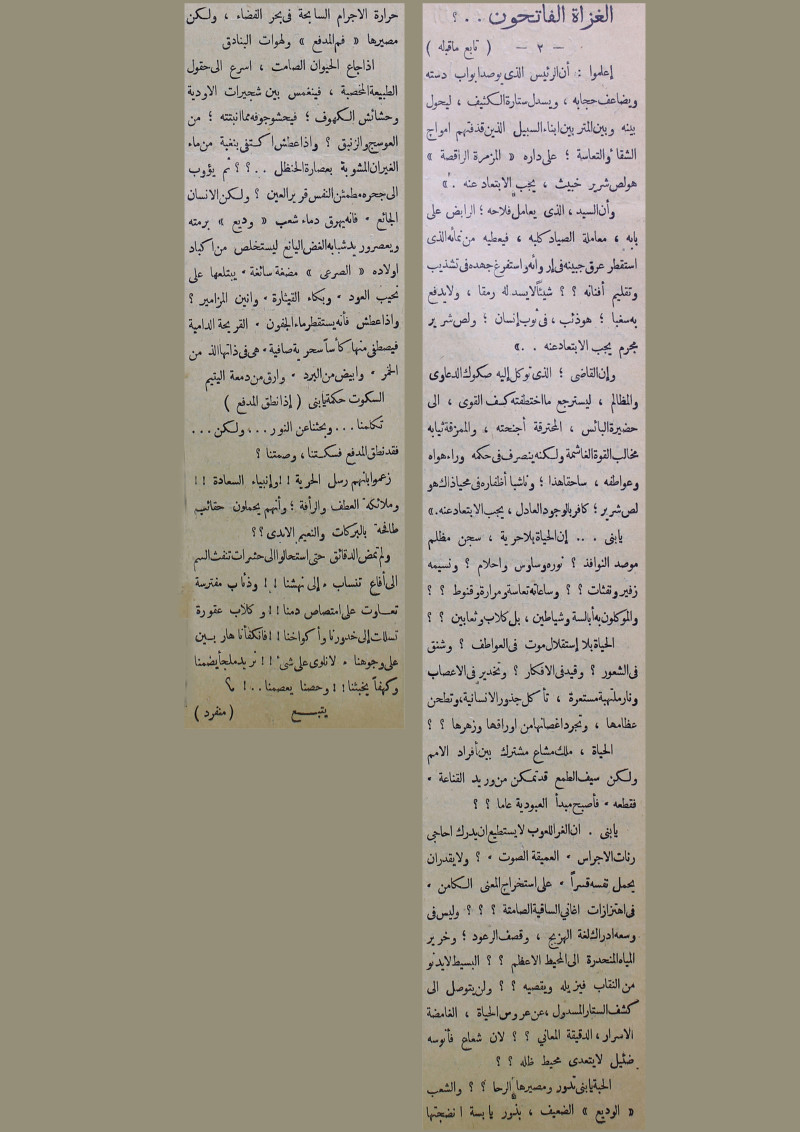 الغزاة الفاتحون . . ؟
— ٣ — ( تابع ماقبله )
إعلموا : أن الرئيس الذى يوصد ابواب دسته
ويضاعف حجابه ، ويسدل ستارة الكثيف ، ليحول
بينه وبين المتر بين ابناء السبيل الذين قذفتهم امواج
الشقاء والتعاسة ؛ على داره « المزمرة الراقصة »
هو لص شرير خبيث ، يجب الابتعاد عنه . »
وأن السيد ، الذى يعامل فلاحه ؛ الرابض على
بابه ، معاملة الصياد كلبه ، فيعطيه من نمائه الذى
استقطر عرق جبينه فى إروائه واستفرغ جهده فى تشذيب
وتقليم أفنانه ؟ ؟ شيئاً لايسد له رمقا ، ولايدفع
به سغبا ؛ هو ذئب ، فى ثوب إنسان ؛ ولص شرير
مجرم يجب الابتعاد عنه . . »
وإن القاضى ؛ الذى توكل إليه صكوك الدعاوى
والمظالم ، ليسترجع ما اختطفته كف القوى ، الى
حضيرة البائس ، المحترقة أجنحته ، والممزقة ثيابه
مخالب القوة الغاشمة ولكنه ينصرف فى حكمه وراء هواه
وعواطفه ، ساحقا هذا ؛ وناشبا أظفاره فى محيا ذاك هو
لص شرير ؛ كافر بالوجود العادل ، يجب الابتعاد عنه . »
يابنى . . . إن الحياة بلا حرية ، سجن مظلم
موصد النوافذ ؟ نوره وساوس واحلام ؟ ونسيمه
زفير ونفثات ؟ ؟ وساعاته تعاسة ومرارة وقنوط ؟ ؟
والموكلون به أبالسة وشياطين ، بل كلاب وثعابين ؟ ؟
الحياة بلا إستقلال موت فى العواطف ؟ وشنق
فى الشعور ؟ وقيد فى الافكار ؟ وتخدير فى الاعصاب
ونار ملتهبة مستعرة ، تأكل جذور الانسانية ، وتطحن
عظامها ، وتجرد اغصانها من اوراقها وزهرها ؟ ؟
الحياة ، ملك مشاع مشترك بين أفراد الامم
ولكن سيف الطمع قد تمكن من وريد القناعة .
فقطعه . فأصبح مبدأ العبودية عاما ؟ ؟
يابنى . ان الغر اللعوب لا يستطيع ان يدرك احاجى
رنات الاجراس . العميقة الصوت . ؟ ولا يقدر ان
يحمل نفسه قسراً . على استخراج المعنى الكامن .
فى اهتزازات اغاني الساقية الصامتة ؟ ؟ ؟ وليس فى
وسعه ادراك لغة الهزيج ، وقصف الرعود ؛ وخرير
المياه المنحدرة الى المحيط الاعظم ؟ ؟ البسيط لايدنو
من النقاب فيزيله ويقصيه ؟ ؟ ولن يتوصل الى
كشف الستار المسدول ، عن عروس الحياة ، الغامضة
الاسرار ، الدقيقة المعاني ؟ ؟ لان شعاع فأنوسه
ضئيل لايتعدى محيط ظله ؟ ؟
الحبة يابنى تدور ومصيرها الرحا ؟ ؟ والشعب
« الوديع » الضعيف ، بذور يابسة انضجتها
حرارة الاجرام السابحة فى بحر الفضاء ، ولكن
مصيرها « فم المدفع » ولهوات البنادق
اذا جاع الحيوان الصامت ، اسرع الى حقول
الطبيعة المخصبة ، فينغمس بين شجيرات الاودية
وحشائش الكهوف ؛ فيحشو جوفه مما انبتته ؛ من
العوسج والزنبق ؟ واذا عطش اكتفى بنغبة من ماء
الغيران المشوبة بعصارة الحنظل . . ؟ ؟ ثم يؤوب
الى جحره مطمئن النفس قرير العين ؟ ولكن الانسان
الجائع . فانه يهرق دماء شعب « وديع » برمته
ويعصر وريد شبابه الغض اليانع ليستخلص من اكباد
اولاده « الصرعى » مضغة سائغة . يبتلعها على
نحيب العود . وبكاء القيثارة . وانين المزامير ؟
واذا عطش فأنه يستقطر ماء الجفون . القريحة الدامية
فيصطفى منها كأساً سحرية صافية . هى فى ذاتها الذ من
الخمر . وابيض من البرد . وارق من دمعة اليتيم
السكوت حكمة يابنى ( إذا نطق المدفع )
تكلمنا . . . وبحثنا عن النور . . . ولكن . . .
فقد نطق المدفع فسكتنا ، وصمتنا ؟
زعموا بانهم رسل الحرية ! ! وإنبياء السعادة ! !
وملائكة العطف والرأفة ؛ وأنهم يحملون حقائب
طافحة بالبركات والنعيم الابدى ؟ ؟
ولم تمض الدقائق حتى استحالوا الى حشرات تنفث السم
الى أفاع تنساب ء إلى نهشنا ! ! وذئاب مفترسة
تعاوت على امتصاص دمنا ! ! وكلاب عقورة
تسللت إلى خدورنا وأكواخنا ! ! فانكفأنا هاربين
على وجوهنا . لانلوى على شىء ! ! نريد ملجأ يضمنا
وكهفاً يخبئنا ! ! وحصنا يعصمنا . . ! ؟
يتبع ( منفرد )